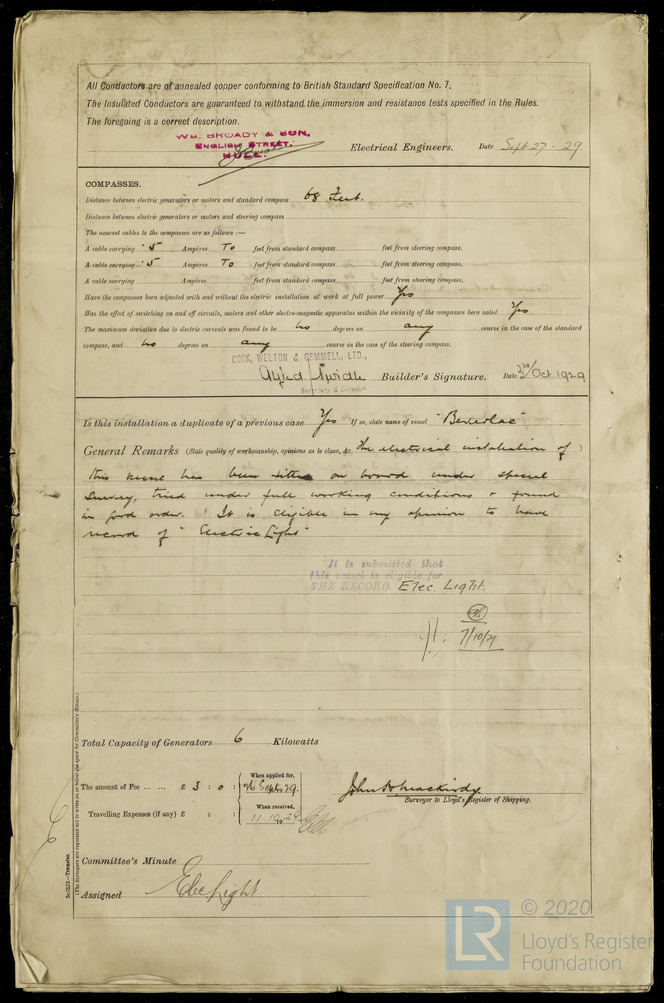 All Conductors are of annealed copper conforming to British Standard Specification No. 7.
The Insulated Conductors are guaranteed to withstand the immersion and resistance tests specified in the Rules.
The foregoing is a correct description.
WM. BROADY & SON,
ENGLISH STREET,
HULL. Electrical Engineers. Date Sept 27 - 29.
COMPASSES.
Distance between electric generators or motors and standard compass 68 Feet.
Distance between electric generators or motors and steering compass
The nearest cables to the compasses are as follows:—
A cable carrying .5 Ampères To feet from standard compass feet from steering compass.
A cable carrying .5 Ampères To feet from standard compass feet from steering compass.
A cable carrying Ampères feet from standard compass feet from steering compass.
Have the compasses been adjusted with and without the electric installation at work at full power Yes
Has the effect of switching on and off circuits, motors and other electro-magnetic apparatus within the vicinity of the compasses been noted Yes
The maximum deviation due to electric currents was found to be no degrees on any course in the case of the standard
compass, and no degrees on any course in the case of the steering compass.
COOK, WELTON & GEMMELL, LTD.,
Builder's Signature. Date Oct 1929
Secretary & Director
Is this installation a duplicate of a previous case Yes If so, state name of vessel "Beverlac"
General Remarks (State quality of workmanship, opinions as to class, &c. The electrical installation of )
this vessel has been fitted on board under special
survey, tried under full working conditions & found
in good order. It is eligible in my opinion to have
record of "Electric Light"
It is submitted that
this vessel is eligible for
THE RECORD Elec. Light.
7/10/29
Total Capacity of Generators 6 Kilowatts
The amount of Fee ... ... £ 3 : 0 : When applied for, 26 Sept 29.
Surveyor to Lloyd's Register of Shipping.
Travelling Expenses (if any) £ : : When received, 11.10.29
Committee's Minute
Assigned Elec Light
(The Surveyors are requested not to write on or below the space for Committee's Minute.)
© 2020
LR
Lloyd's Register
Foundation